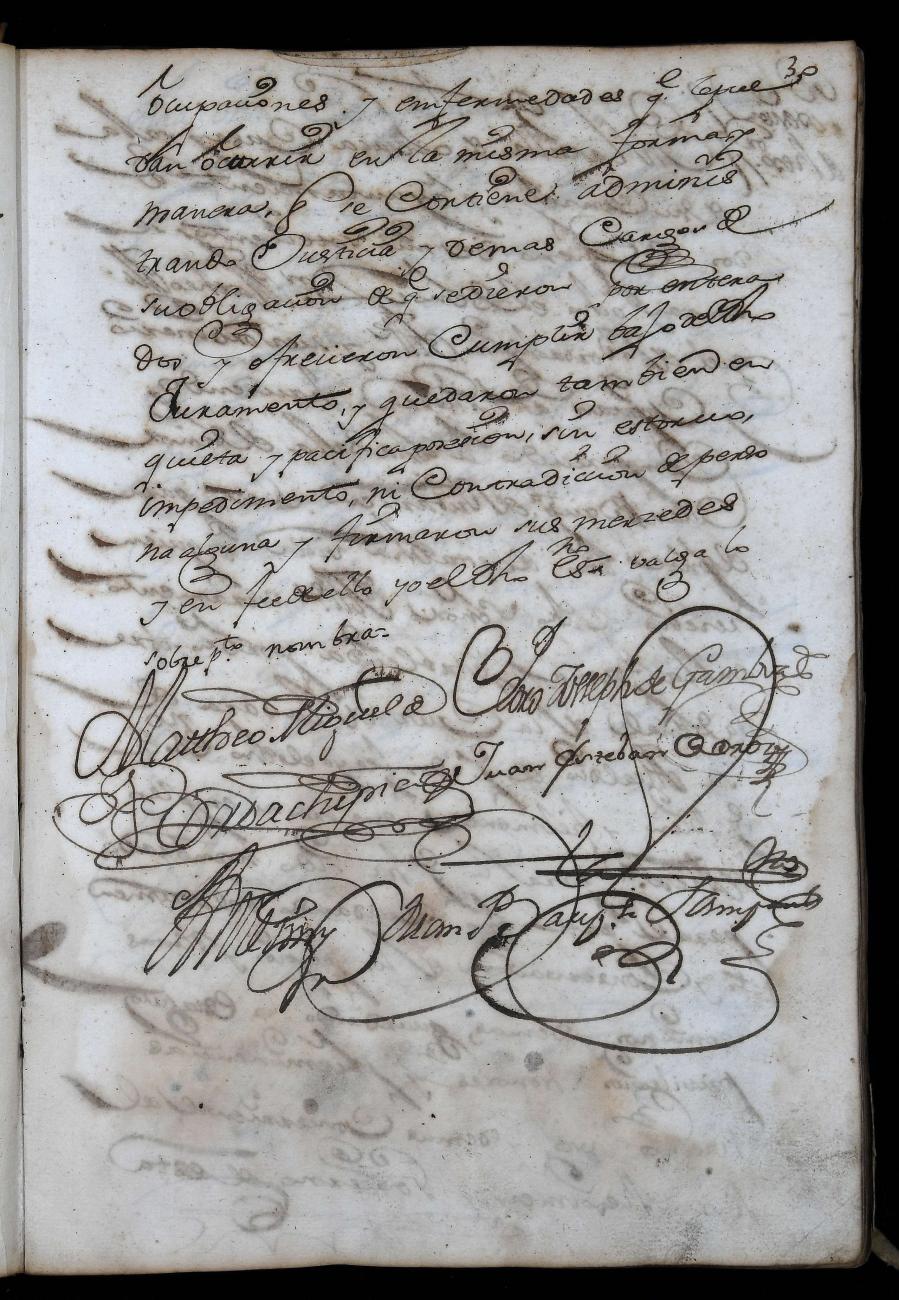 38
Ocupaciones y enfermedades q. le pue
dan ocurrir en la misma forma y
manera, q. se Contiene: adminis
trando Justicia y demas Cargos de
su obligacion de q. se dieron por entera
dos y ofrecieron Cumplir bajo de dho
Juramento, y quedaron tambien en
quieta y pacifica posesion, sin estorvo,
impedimento, ni Contradiccion de perso
na alguna y firmaron sus mercedes
y en fee de ello yo el dho Essno valga lo
sobre pto nombra
Mattheo Miguel de Elias Joseph de Gamboa
Juan Esteban
Ante my Juan de